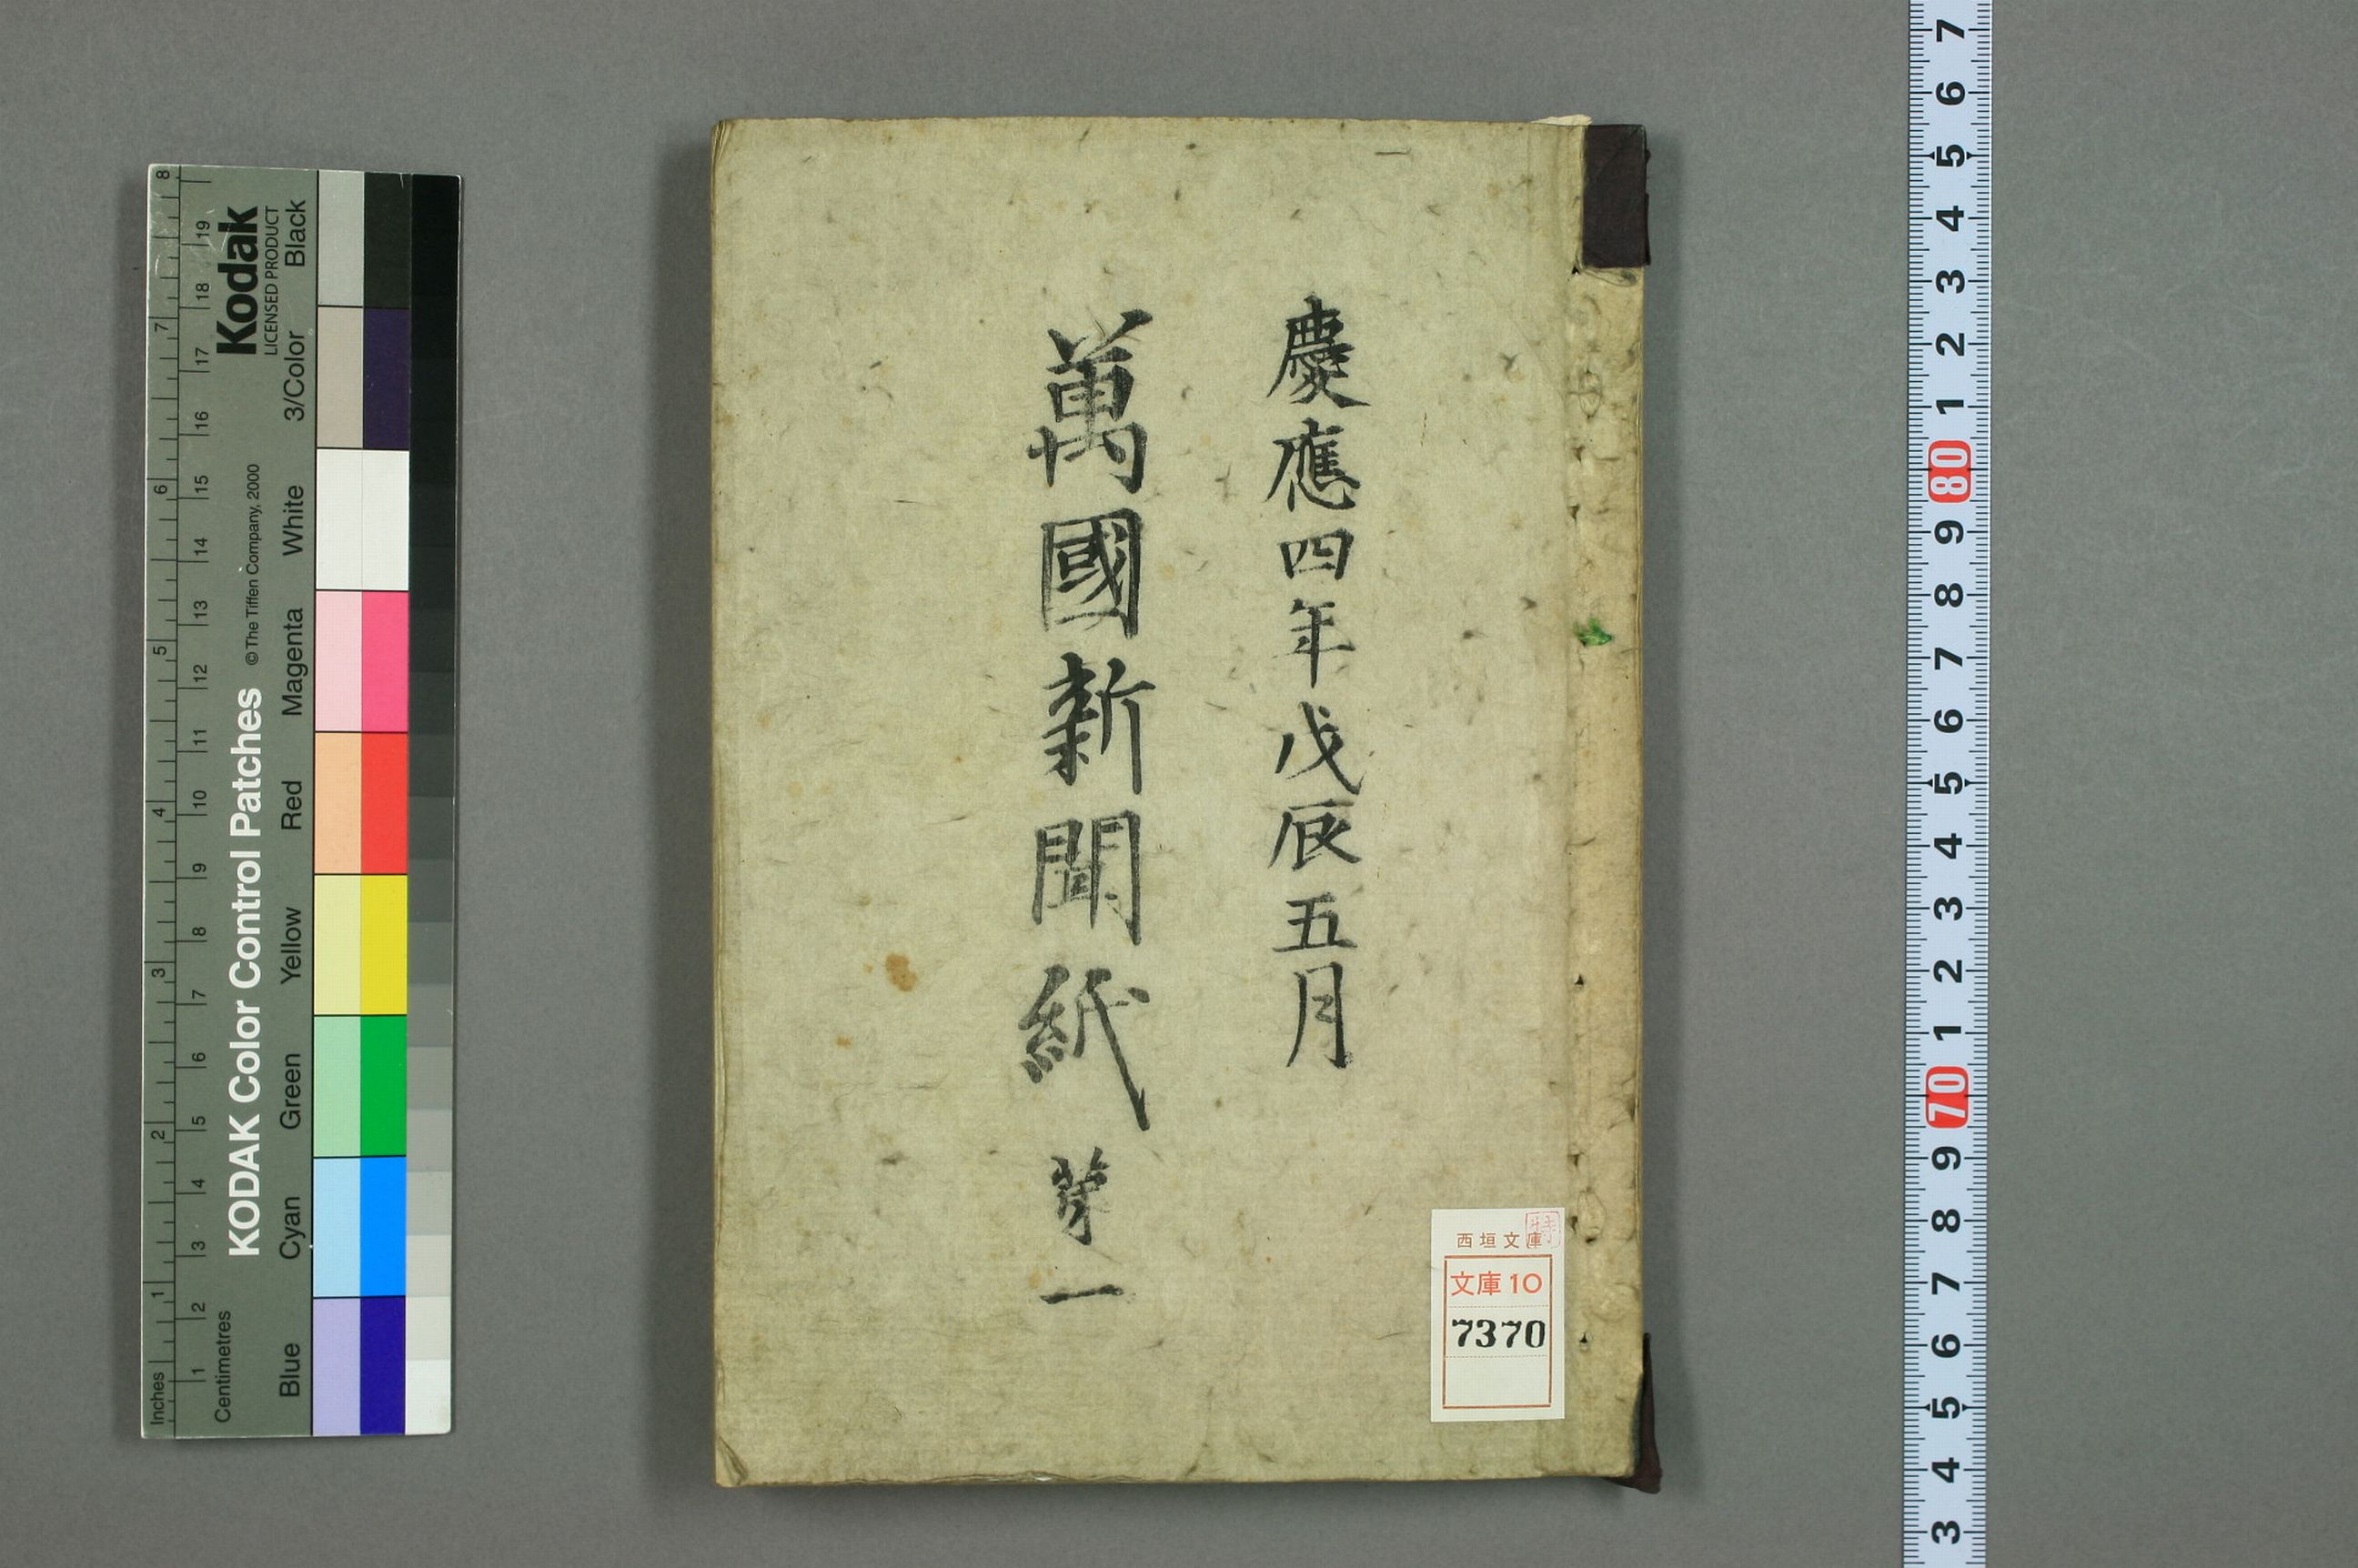 慶應四年戊辰五月
萬國新聞紙 第一
西垣文庫
文庫10
7370
Kodak
LICENSED PRODUCT
KODAK Color Control Patches
©The Tiffen Company, 2000
Blue Cyan Green Yellow Red Magenta White 3/Color Black
Centimetres
1 2 3 4 5 6 7 8 9 10 11 12 13 14 15 16 17 18 19
Inches
1 2 3 4 5 6 7 8
7 6 5 4 3 2 1 80 9 8 7 6 5 4 3 2 1 70 9 8 7 6 5 4 3